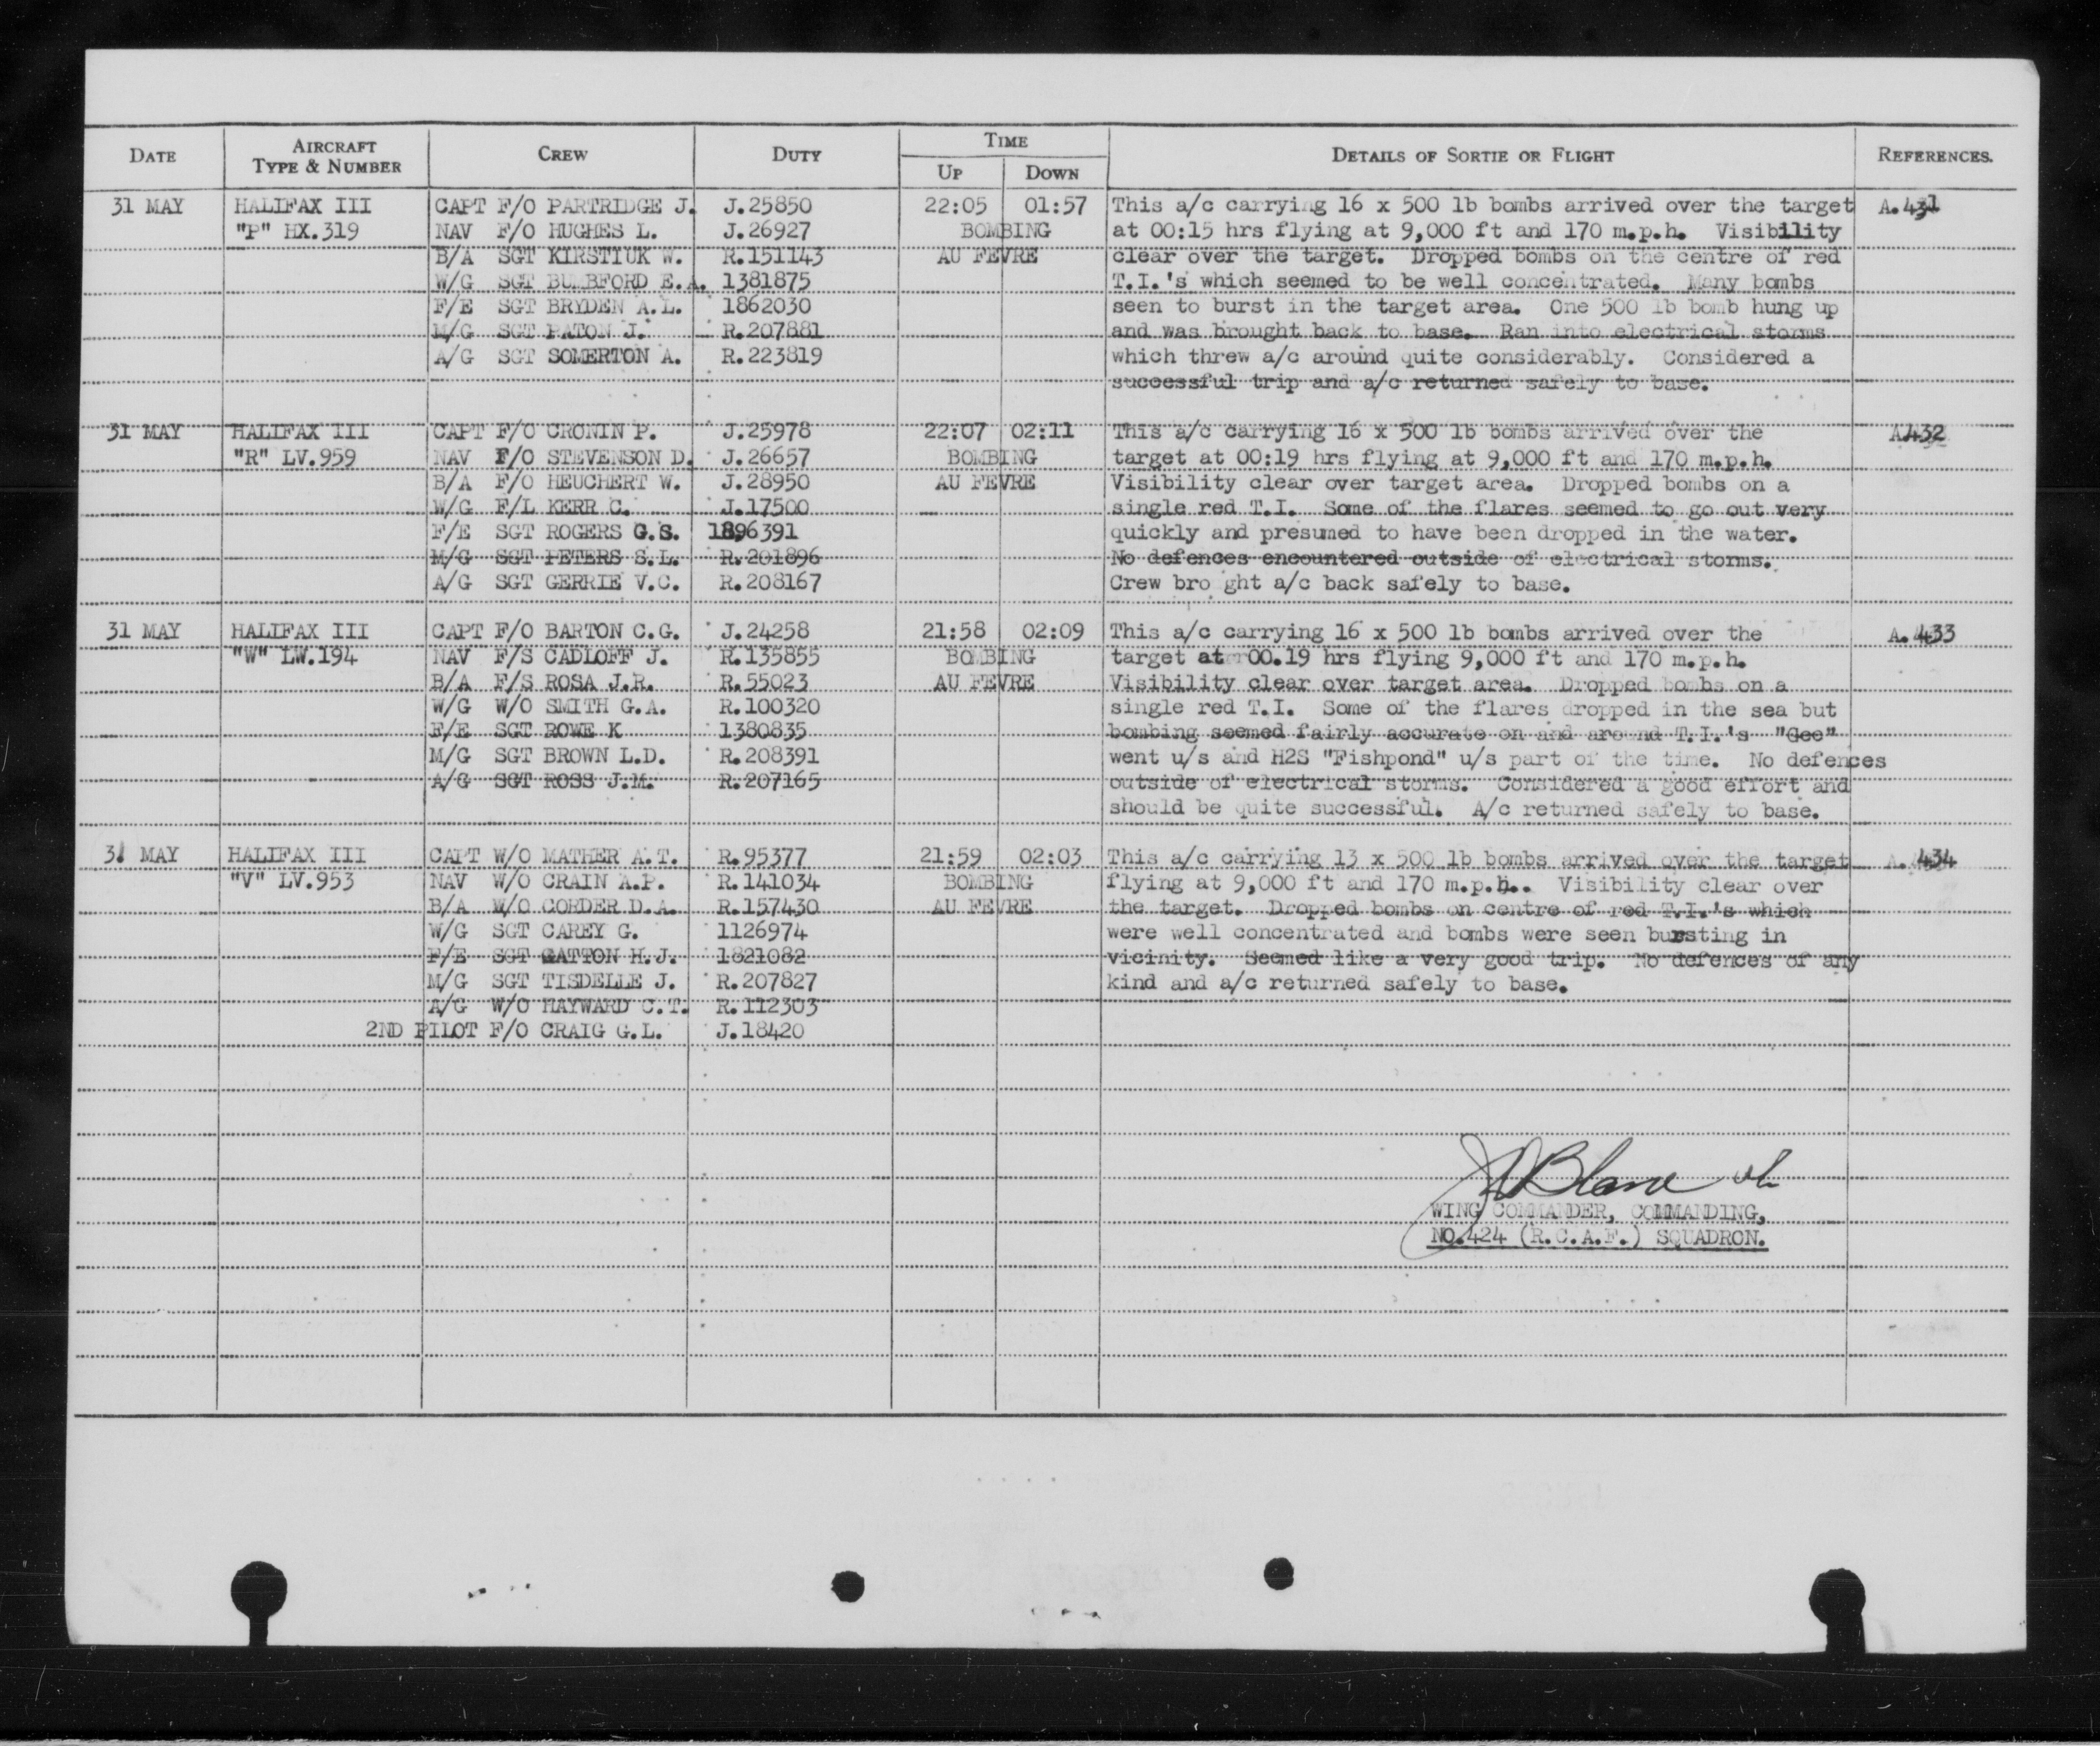 DATE AIRCRAFT TYPE & NUMBER CREW DUTY TIME UP DOWN DETAILS OF SORTIE OR FLIGHT REFERENCES.
31 MAY HALIFAX III CAPT F/O PARTRIDGE J. J.25850 22:05 01:57 This a/c carrying 16 x 500 lb bombs arrived over the target A.431
"P" HX.319 NAV F/O HUGHES L. J.26927 BOMBING at 00:15 hrs flying at 9,000 ft and 170 m.p.h. Visibility
B/A SGT KIRSTIUK W. R.151143 AU FEVRE clear over the target. Dropped bombs on the centre of red
W/G SGT BUMBFORD E.A. 1381875 T.I.'s which seemed to be well concentrated. Many bombs
F/E SGT BRYDEN A.L. 1862030 seen to burst in the target area. One 500 lb bomb hung up
M/G SGT PATON J. R.207881 and was brought back to base. Ran into electrical storms
A/G SGT SOMERTON A. R.223819 which threw a/c around quite considerably. Considered a
successful trip and a/c returned safely to base.
31 MAY HALIFAX III CAPT F/O CRONIN P. J.25978 22:07 02:11 This a/c carrying 16 x 500 lb bombs arrived over the A.432
"R" LV.959 NAV F/O STEVENSON D. J.26657 BOMBING target at 00:19 hrs flying at 9,000 ft and 170 m.p.h.
B/A F/O HEUCHERT W. J.28950 AU FEVRE Visibility clear over target area. Dropped bombs on a
W/G F/L KERR C. J.17500 single red T.I. Some of the flares seemed to go out very
F/E SGT ROGERS G.S. 1896391 quickly and presumed to have been dropped in the water.
M/G SGT PETERS S.L. R.201896 No defences encountered outside of electrical storms.
A/G SGT GERRIE V.C. R.208167 Crew bro ght a/c back safely to base.
31 MAY HALIFAX III CAPT F/O BARTON C.G. J.24258 21:58 02:09 This a/c carrying 16 x 500 lb bombs arrived over the A.433
"W" LW.194 NAV F/S CADLOFF J. R.135855 BOMBING target at 00.19 hrs flying 9,000 ft and 170 m.p.h.
B/A F/S ROSA J.R. R.55023 AU FEVRE Visibility clear over target area. Dropped bombs on a
W/G W/O SMITH G.A. R.100320 single red T.I. Some of the flares dropped in the sea but
F/E SGT ROWE K 1380835 bombing seemed fairly accurate on and around T.I.'s "Gee"
M/G SGT BROWN L.D. R.208391 went u/s and H2S "Fishpond" u/s part of the time. No defences
A/G SGT ROSS J.M. R.207165 outside of electrical storms. Considered a good effort and
should be quite successful. A/c returned safely to base.
31 MAY HALIFAX III CAPT W/O MATHER A.T. R.95377 21:59 02:03 This a/c carrying 13 x 500 lb bombs arrived over the target A.434
"V" LV.953 NAV W/O CRAIN A.P. R.141034 BOMBING flying at 9,000 ft and 170 m.p.h.. Visibility clear over
B/A W/O CORDER D.A. R.157430 AU FEVRE the target. Dropped bombs on centre of red T.I.'s which
W/G SGT CAREY G. 1126974 were well concentrated and bombs were seen bursting in
F/E SGT GATTON H.J. 1821082 vicinity. Seemed like a very good trip. No defences of any
M/G SGT TISDELLE J. R.207827 kind and a/c returned safely to base.
A/G W/O HAYWARD C.T. R.112303
2ND PILOT F/O CRAIG G.L. J.18420
Blane
WING COMMANDER, COMMANDING,
NO.424 (R.C.A.F.) SQUADRON.